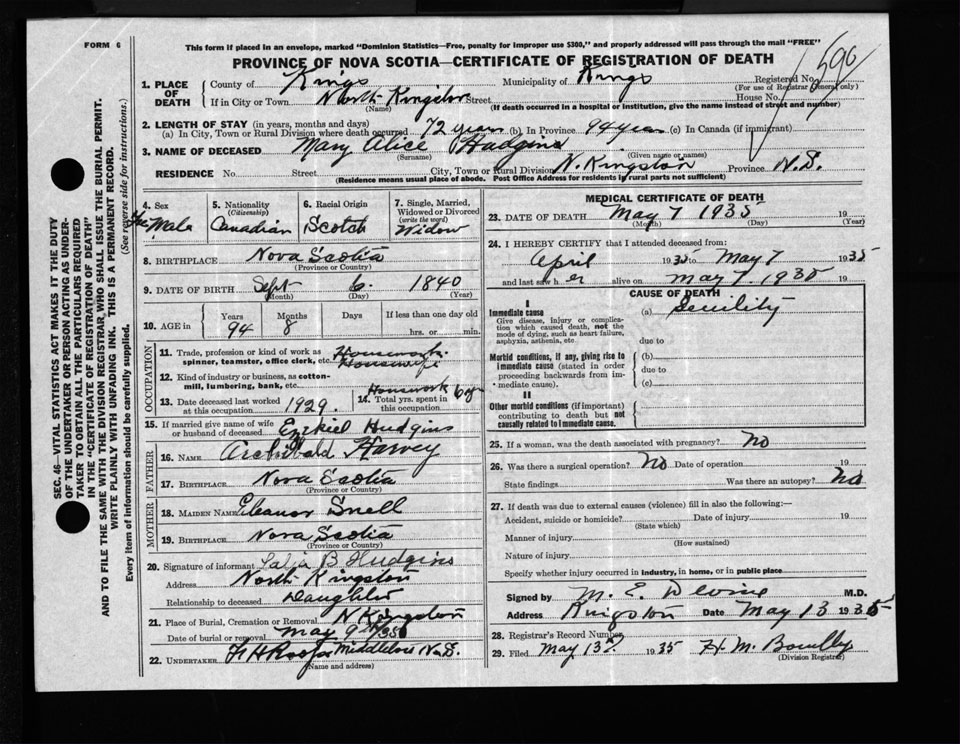 FORM 6
This form if placed in an envelope, marked "Dominion Statistics—Free, penalty for improper use $300," and properly addressed will pass through the mail "FREE"
PROVINCE OF NOVA SCOTIA—CERTIFICATE OF REGISTRATION OF DEATH
1. PLACE OF DEATH County of Kings Municipality of Kings Registered No.
(For use of Registrar General only)
If in City or Town North Kingston Street House No.
(Name) (If death occurred in a hospital or institution, give the name instead of street and number)
2. LENGTH OF STAY (in years, months and days)
(a) In City, Town or Rural Division where death occurred 72 years (b) In Province 94 years (c) In Canada (if immigrant)
3. NAME OF DECEASED Mary Alice Hudgins
(Surname) (Given name or names)
RESIDENCE No. Street City, Town or Rural Division N. Kingston Province N.S.
(Residence means usual place of abode. Post Office Address for residents in rural parts not sufficient)
SEC. 46—VITAL STATISTICS ACT MAKES IT THE DUTY
OF THE UNDERTAKER OR PERSON ACTING AS UNDER-
TAKER TO OBTAIN ALL THE PARTICULARS REQUIRED
IN THE "CERTIFICATE OF REGISTRATION OF DEATH"
AND TO FILE THE SAME WITH THE DIVISION REGISTRAR, WHO SHALL ISSUE THE BURIAL PERMIT.
WRITE PLAINLY WITH UNFADING INK. THIS IS A PERMANENT RECORD.
Every item of information should be carefully supplied. (See reverse side for instructions.)
4. Sex 5. Nationality 6. Racial Origin 7. Single, Married,
(Citizenship) Widowed or Divorced
(write the word)
Fe Male Canadian Scotch Widow
8. BIRTHPLACE Nova Scotia
(Province or Country)
9. DATE OF BIRTH Sept 6 1840
(Month) (Day) (Year)
10. AGE in Years Months Days If less than one day old
94 8 hrs. or min.
OCCUPATION
11. Trade, profession or kind of work as Housework
spinner, teamster, office clerk, etc. Housewife
12. Kind of industry or business, as cotton-
mill, lumbering, bank, etc. Housework
13. Date deceased last worked at this occupation 1929. 14. Total yrs. spent in this occupation
15. If married give name of wife or husband of deceased Ezekiel Hudgins
FATHER
16. NAME Archibald Harvey
17. BIRTHPLACE Nova Scotia
(Province or Country)
MOTHER
18. MAIDEN NAME Eleanor Snell
19. BIRTHPLACE Nova Scotia
(Province or Country)
20. Signature of informant B Hudgins
Address North Kingston
Relationship to deceased Daughter
21. Place of Burial, Cremation or Removal N Kingston
Date of burial or removal May 9th 1935
22. UNDERTAKER Middleton N.S.
(Name and address)
MEDICAL CERTIFICATE OF DEATH
23. DATE OF DEATH May 7 1935 19
(Month) (Day) (Year)
24. I HEREBY CERTIFY that I attended deceased from:
April 1935 to May 7 1935
and last saw her alive on May 7. 1935 19
CAUSE OF DEATH
I
Immediate cause (a) Senility
Give disease, injury or complica-
tion which caused death, not the
mode of dying, such as heart failure,
asphyxia, asthenia, etc. due to
Morbid conditions, if any, giving rise to (b)
immediate cause (stated in order due to
proceeding backwards from im-
mediate cause). (c)
II
Other morbid conditions (if important)
contributing to death but not
causally related to immediate cause.
25. If a woman, was the death associated with pregnancy? No
26. Was there a surgical operation? No Date of operation 19
State findings Was there an autopsy? No
27. If death was due to external causes (violence) fill in also the following:—
Accident, suicide or homicide? Date of injury 19
(State which)
Manner of injury
(How sustained)
Nature of injury
Specify whether injury occurred in industry, in home, or in public place
Signed by M. E. Devine M.D.
Address Kingston Date May 13 1935
28. Registrar's Record Number
29. Filed May 13 1935 H. M.
(Division Registrar)